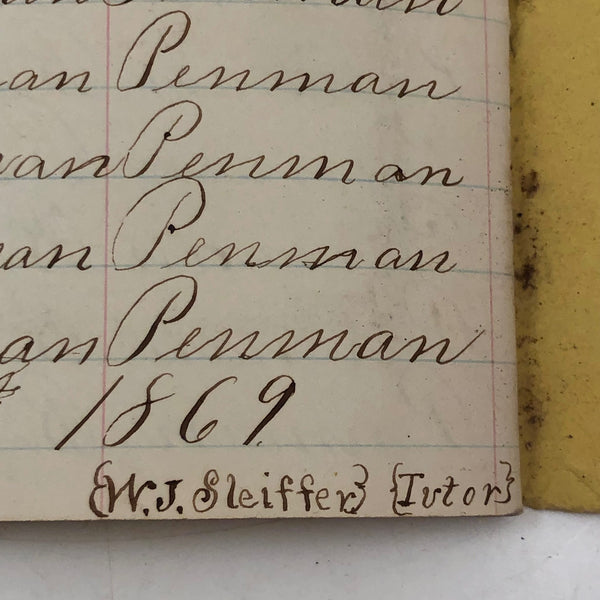 an Penman
van Penman
an Penman
an Penman
1869.
{W.J. Sleiffer} {Tutor}